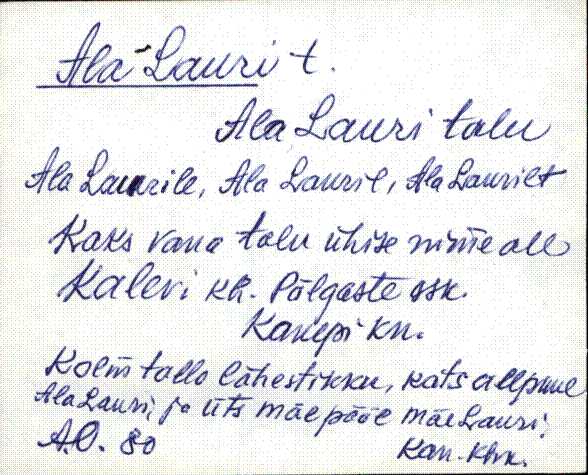 Ala-Lauri t.
Ala Lauri talu
Ala Laurile, Ala Lauril, Ala Laurilt
Kaks vana talu ühise nime all
Kalevi kh. Põlgaste ssk.
Kanepi kn.
Kolm tallo lähestikku, kats allpuul
Ala Lauri, ja üts mäe pääl mäe Lauri,
A.O. 80
Kan. khn.